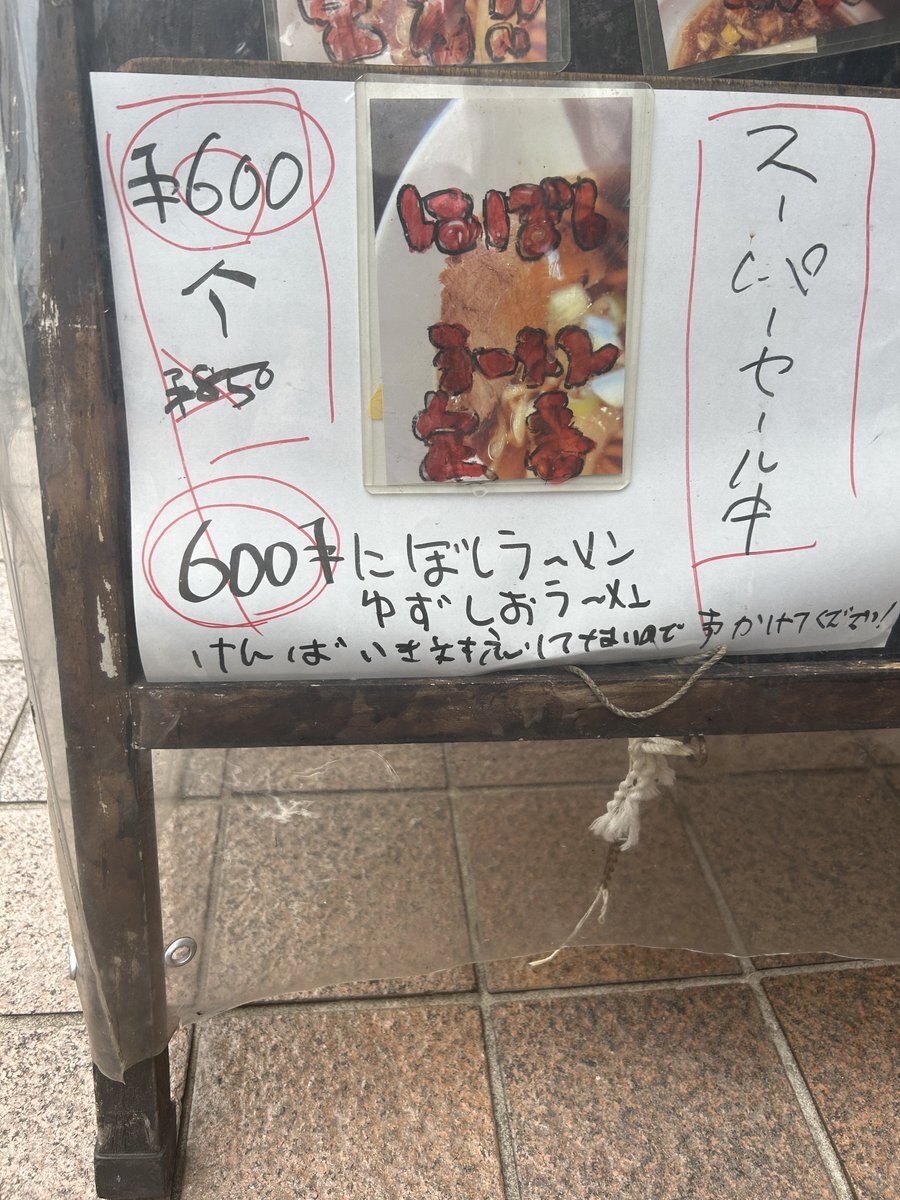 スーパーセール中
にぼし
ラーメン
¥600
↑
¥850
600¥
にぼしラーメン
ゆずしおラーメン
けんばいき してないので かけてください!